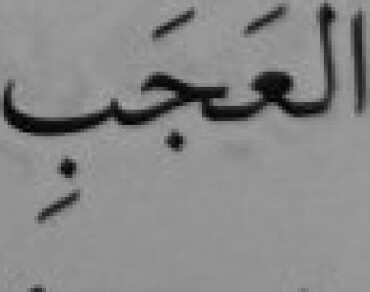 العَجَبِ